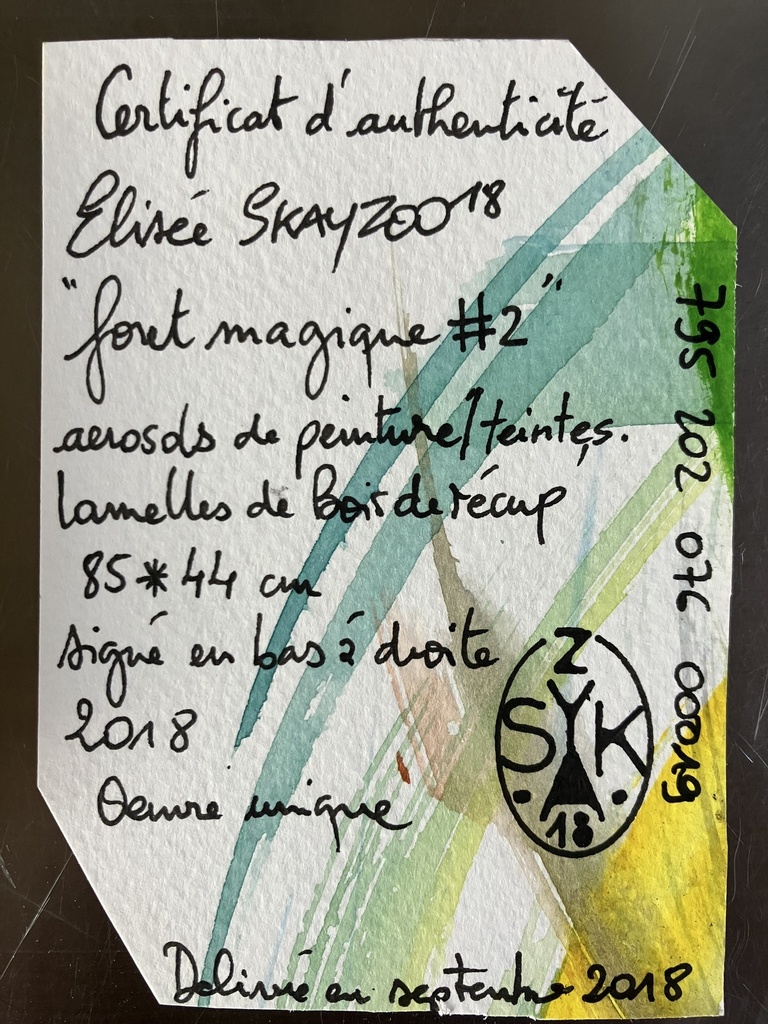 Certificat d'authenticité
Elisée SKAYZOO18
"foret magique #2"
aerosols de peinture/teintes.
lamelles de Bois de récup
85*44 cm
signé en bas à droite
2018
Oeuvre unique
Delivré en septembre 2018
795 202 076 00019
Z
SYK
18